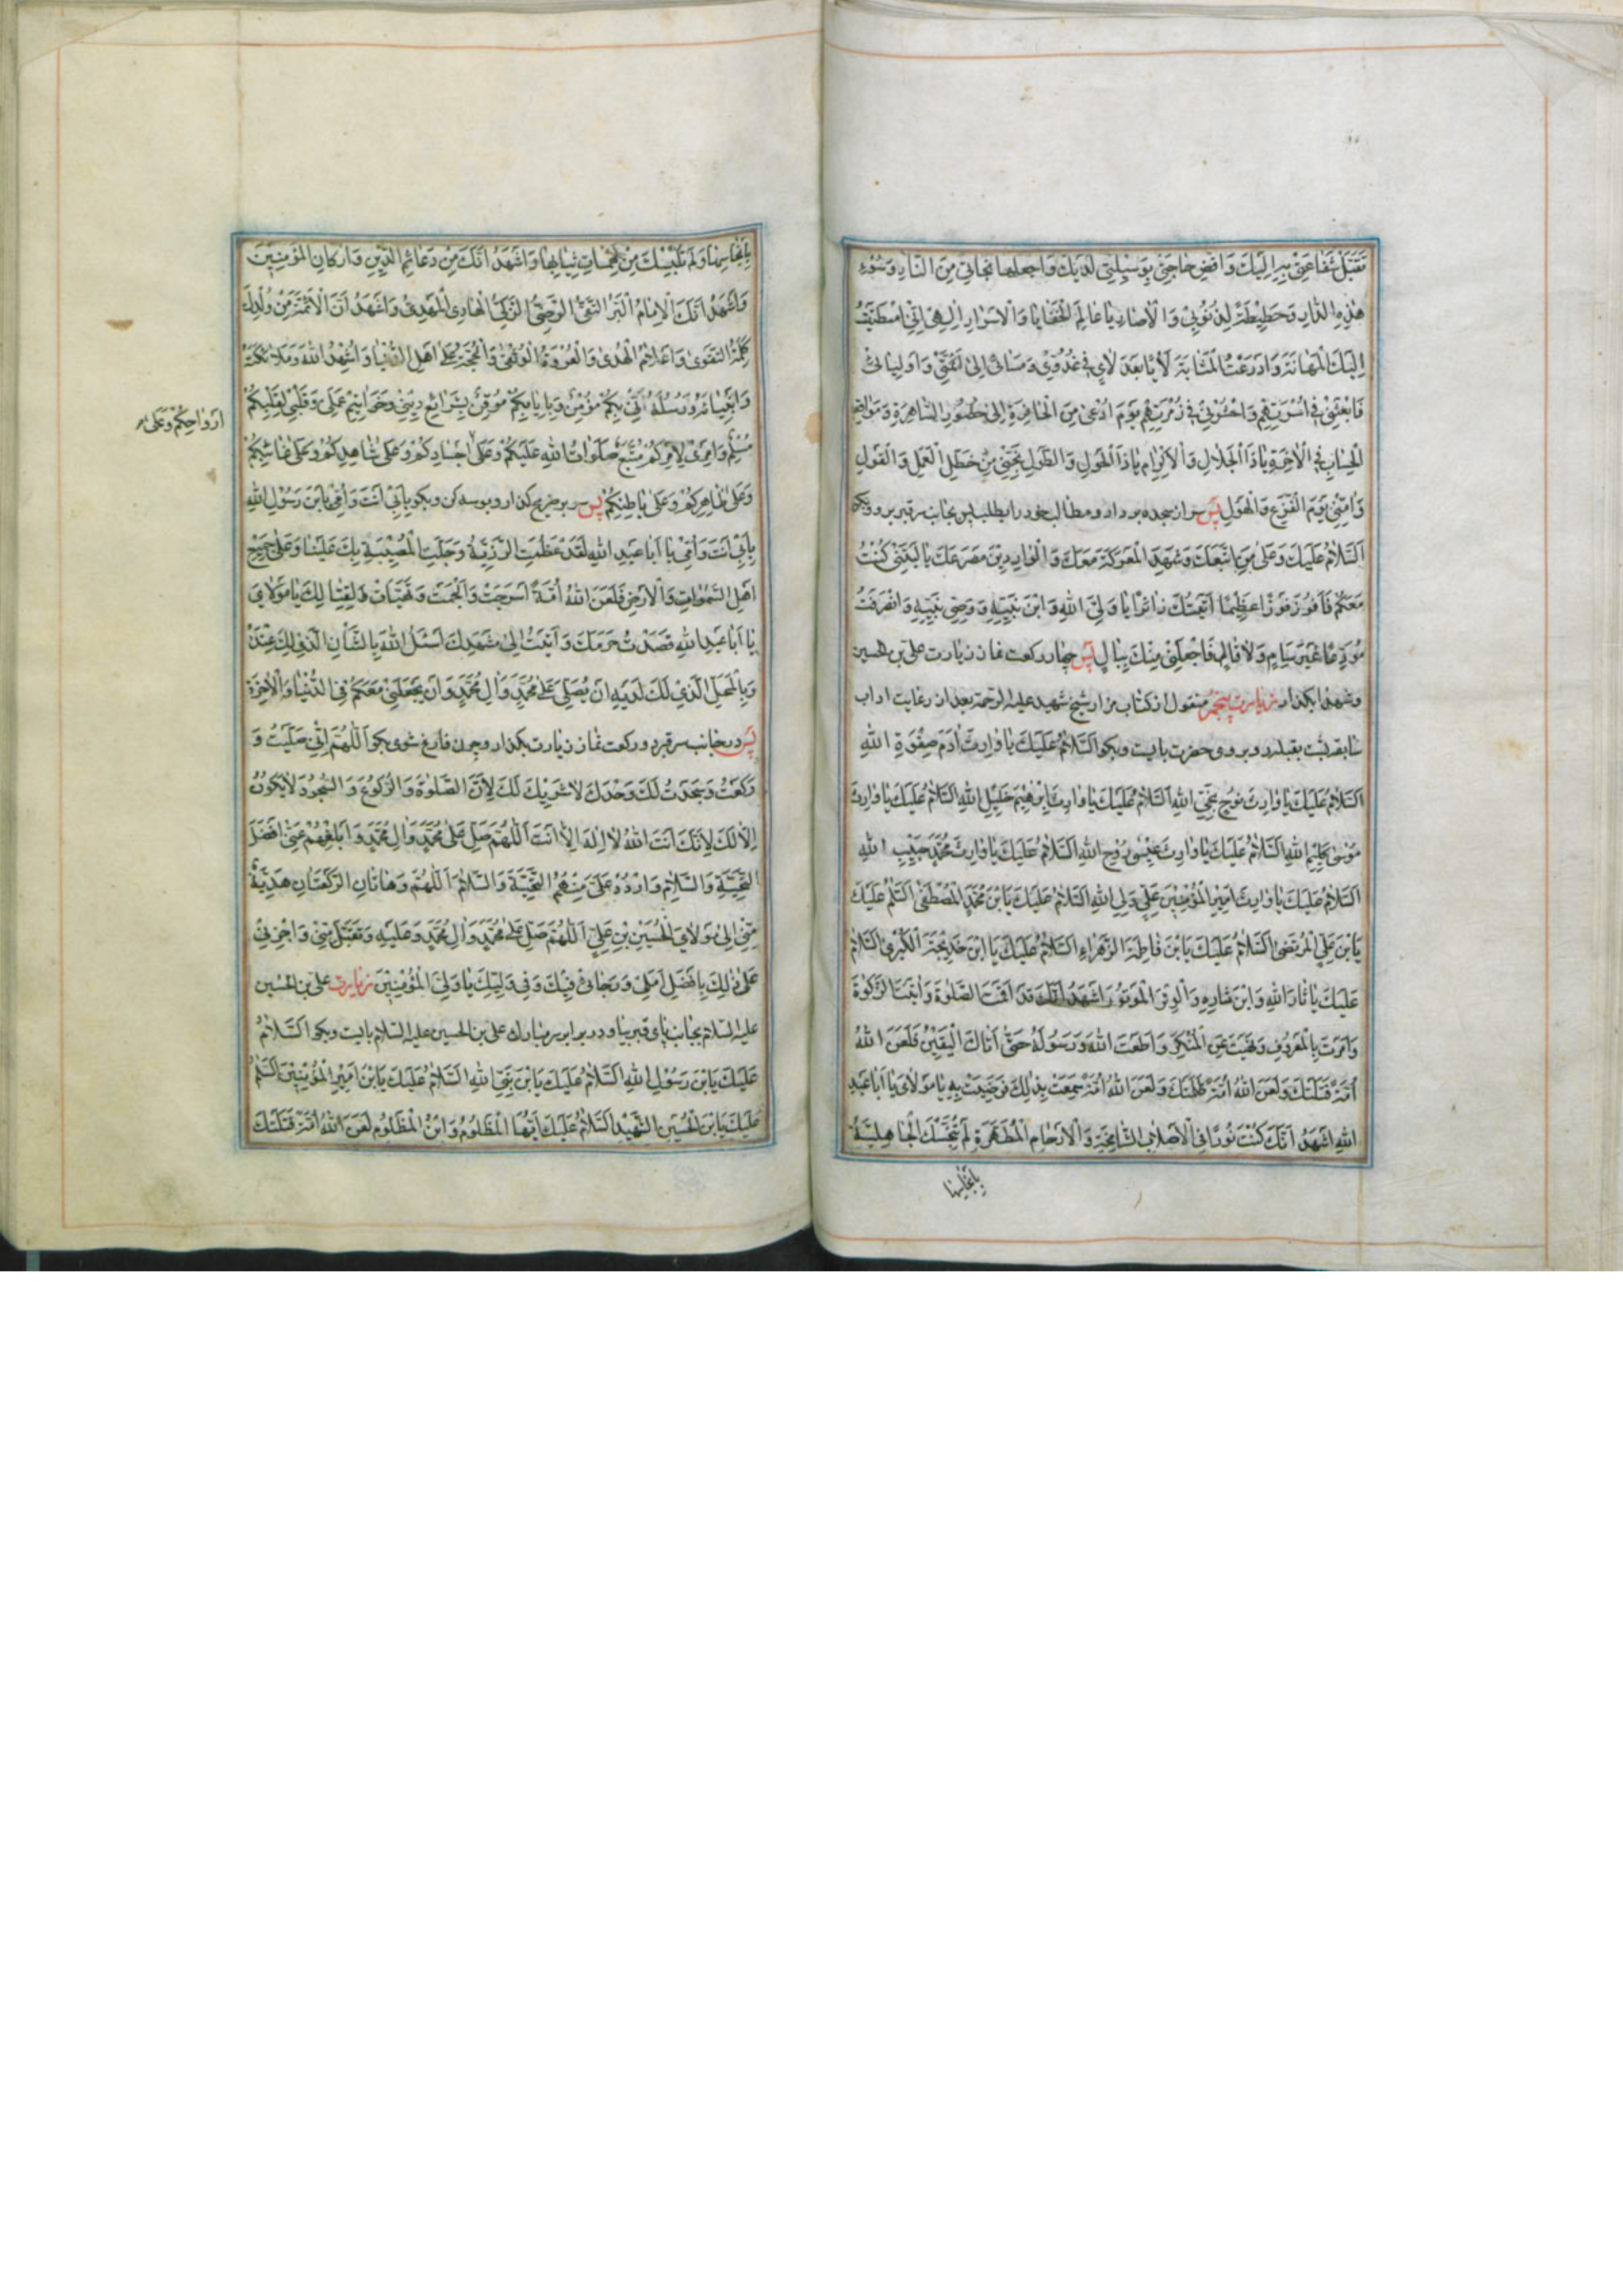 تَقَبَّلْ شَفَاعَتِي بِهِ اِلَيْكَ وَاقْضِ حَاجَتِي بِوَسِيلَتِي لَدَيْكَ وَاجْعَلْهَا نَجَاتِي مِنَ النَّارِ وَسُوءِ
هٰذِهِ الدَّارِ وَحَطِيطَةً لِذُنُوبِي وَالْاٰصَارِ يَا عَالِمَ الْخَفَايَا وَالْاَسْرَارِ اِلٰهِي اِنِّي
اِلَيْكَ الْمَهَانَةَ وَادَّرَعْتُ
فَابْعَثْنِي فِي اُسْرَتِهِمْ وَاحْشُرْنِي فِي زُمْرَتِهِمْ يَوْمَ اُدْعٰى مِنَ الْحَافِرَةِ اِلٰى حُضُورِ السَّاهِرَةِ
الْحِسَابِ فِي الْاٰخِرَةِ يَا ذَا الْجَلَالِ وَالْاِكْرَامِ يَا ذَا الْحَوْلِ وَالطَّوْلِ نَجِّنِي مِنْ خَطَلِ الْعَمَلِ وَالْقَوْلِ
وَاٰمِنِّي يَوْمَ الْفَزَعِ وَالْهَوْلِ پس سر از سجده بردار و مطالب خود را بطلب پس بجانب سر قبر برو وبگو
اَلسَّلَامُ عَلَيْكَ وَعَلٰى مَنِ اتَّبَعَكَ وَشَهِدَ الْمَعْرَكَةَ مَعَكَ وَالْوَارِدِينَ مَصْرَعَكَ يَا لَيْتَنِي كُنْتُ
مَعَكُمْ فَاَفُوزَ فَوْزًا عَظِيمًا اَتَيْتُكَ زَائِرًا يَا وَلِيَّ اللّٰهِ وَابْنَ نَبِيِّهِ وَوَصِيِّ نَبِيِّهِ وَانْصَرَفْتُ
مُوَدِّعًا غَيْرَ سَئِمٍ وَلَا قَالٍ فَاجْعَلْنِي مِنْكَ بِبَالٍ پس چهار ركعت نماز زيارت على بن الحسين
وشهدا بگذار زيارت پنجم منقول از كتاب مزار شيخ شهيد عليه الرحمة بعد از رعايت اداب
سابقه پشت بقبله رو بروى حضرت بايست وبگو اَلسَّلَامُ عَلَيْكَ يَا وَارِثَ اٰدَمَ صِفْوَةِ اللّٰهِ
اَلسَّلَامُ عَلَيْكَ يَا وَارِثَ نُوحٍ نَجِيِّ اللّٰهِ اَلسَّلَامُ عَلَيْكَ يَا وَارِثَ اِبْرٰهِيمَ خَلِيلِ اللّٰهِ اَلسَّلَامُ عَلَيْكَ يَا وَارِثَ
مُوسٰى كَلِيمِ اللّٰهِ اَلسَّلَامُ عَلَيْكَ يَا وَارِثَ عِيسٰى رُوحِ اللّٰهِ اَلسَّلَامُ عَلَيْكَ يَا وَارِثَ مُحَمَّدٍ حَبِيبِ اللّٰهِ
اَلسَّلَامُ عَلَيْكَ يَا وَارِثَ اَمِيرِ الْمُؤْمِنِينَ عَلِيٍّ وَلِيِّ اللّٰهِ اَلسَّلَامُ عَلَيْكَ يَا بْنَ مُحَمَّدٍ الْمُصْطَفٰى اَلسَّلَامُ عَلَيْكَ
يَا بْنَ عَلِيٍّ الْمُرْتَضٰى اَلسَّلَامُ عَلَيْكَ يَا بْنَ فَاطِمَةَ الزَّهْرَاءِ اَلسَّلَامُ عَلَيْكَ يَا ابْنَ خَدِيجَةَ الْكُبْرٰى اَلسَّلَامُ
عَلَيْكَ يَا ثَارَ اللّٰهِ وَابْنَ ثَارِهِ وَالْوِتْرَ الْمَوْتُورَ اَشْهَدُ اَنَّكَ قَدْ اَقَمْتَ الصَّلٰوةَ وَاٰتَيْتَ الزَّكٰوةَ
وَاَمَرْتَ بِالْمَعْرُوفِ وَنَهَيْتَ عَنِ الْمُنْكَرِ وَاَطَعْتَ اللّٰهَ وَرَسُولَهُ حَتّٰى اَتَاكَ الْيَقِينُ فَلَعَنَ اللّٰهُ
اُمَّةً قَتَلَتْكَ وَلَعَنَ اللّٰهُ اُمَّةً ظَلَمَتْكَ وَلَعَنَ اللّٰهُ اُمَّةً سَمِعَتْ بِذٰلِكَ فَرَضِيَتْ بِهِ يَا مَوْلَايَ يَا اَبَا عَبْدِ
اللّٰهِ اَشْهَدُ اَنَّكَ كُنْتَ نُورًا فِي الْاَصْلَابِ الشَّامِخَةِ وَالْاَرْحَامِ الْمُطَهَّرَةِ لَمْ تُنَجِّسْكَ الْجَاهِلِيَّةُ
بِاَنْجَاسِهَا
بِاَنْجَاسِهَا وَلَمْ تُلْبِسْكَ مِنْ مُدْلَهِمَّاتِ ثِيَابِهَا وَاَشْهَدُ اَنَّكَ مِنْ دَعَائِمِ الدِّينِ وَاَرْكَانِ الْمُؤْمِنِينَ
وَاَشْهَدُ اَنَّكَ الْاِمَامُ الْبَرُّ التَّقِيُّ الرَّضِيُّ الزَّكِيُّ الْهَادِي الْمَهْدِيُّ وَاَشْهَدُ اَنَّ الْاَئِمَّةَ مِنْ وُلْدِكَ
كَلِمَةُ التَّقْوٰى وَاَعْلَامُ الْهُدٰى وَالْعُرْوَةُ الْوُثْقٰى وَالْحُجَّةُ عَلٰى اَهْلِ الدُّنْيَا وَاُشْهِدُ اللّٰهَ وَمَلَائِكَتَهُ
وَاَنْبِيَائَهُ وَرُسُلَهُ اَنِّي بِكُمْ مُؤْمِنٌ وَبِاِيَابِكُمْ مُوقِنٌ بِشَرَائِعِ دِينِي وَخَوَاتِيمِ عَمَلِي وَقَلْبِي لِقَلْبِكُمْ
سِلْمٌ وَاَمْرِي لِاَمْرِكُمْ مُتَّبِعٌ صَلَوَاتُ اللّٰهِ عَلَيْكُمْ وَعَلٰى اَجْسَادِكُمْ وَعَلٰى شَاهِدِكُمْ وَعَلٰى غَائِبِكُمْ
اَرْوَاحِكُمْ وَعَلٰى
وَعَلٰى ظَاهِرِكُمْ وَعَلٰى بَاطِنِكُمْ پس سر بر ضريح گذار و بوسه كن وبگو بِاَبِي اَنْتَ وَاُمِّي يَا بْنَ رَسُولِ اللّٰهِ
بِاَبِي اَنْتَ وَاُمِّي يَا اَبَا عَبْدِ اللّٰهِ لَقَدْ عَظُمَتِ الرَّزِيَّةُ وَجَلَّتِ الْمُصِيبَةُ بِكَ عَلَيْنَا وَعَلٰى جَمِيعِ
اَهْلِ السَّمٰوَاتِ وَالْاَرْضِ فَلَعَنَ اللّٰهُ اُمَّةً اَسْرَجَتْ وَاَلْجَمَتْ وَتَهَيَّاَتْ لِقِتَالِكَ يَا مَوْلَايَ
يَا اَبَا عَبْدِ اللّٰهِ قَصَدْتُ حَرَمَكَ وَاَتَيْتُ اِلٰى مَشْهَدِكَ اَسْئَلُ اللّٰهَ بِالشَّاْنِ الَّذِي لَكَ عِنْدَهُ
وَبِالْمَحَلِّ الَّذِي لَكَ لَدَيْهِ اَنْ يُصَلِّيَ عَلٰى مُحَمَّدٍ وَاٰلِ مُحَمَّدٍ وَاَنْ يَجْعَلَنِي مَعَكُمْ فِي الدُّنْيَا وَالْاٰخِرَةِ
پس در جانب سر قبر دو ركعت نماز زيارت بگذار وچون فارغ شوى بگو اَللّٰهُمَّ اِنِّي صَلَّيْتُ وَ
رَكَعْتُ وَسَجَدْتُ لَكَ وَحْدَكَ لَا شَرِيكَ لَكَ لِاَنَّ الصَّلٰوةَ وَالرُّكُوعَ وَالسُّجُودَ لَا يَكُونُ
اِلَّا لَكَ لِاَنَّكَ اَنْتَ اللّٰهُ لَا اِلٰهَ اِلَّا اَنْتَ اَللّٰهُمَّ صَلِّ عَلٰى مُحَمَّدٍ وَاٰلِ مُحَمَّدٍ وَاَبْلِغْهُمْ عَنِّي اَفْضَلَ
التَّحِيَّةِ وَالسَّلَامِ وَارْدُدْ عَلَيَّ مِنْهُمُ التَّحِيَّةَ وَالسَّلَامَ اَللّٰهُمَّ وَهَاتَانِ الرَّكْعَتَانِ هَدِيَّةٌ
مِنِّي اِلٰى مَوْلَايَ الْحُسَيْنِ بْنِ عَلِيٍّ اَللّٰهُمَّ صَلِّ عَلٰى مُحَمَّدٍ وَاٰلِ مُحَمَّدٍ وَعَلَيْهِ وَتَقَبَّلْ مِنِّي وَاْجُرْنِي
عَلٰى ذٰلِكَ بِاَفْضَلِ اَمَلِي وَرَجَائِي فِيكَ وَفِي وَلِيِّكَ يَا وَلِيَّ الْمُؤْمِنِينَ زيارت على بن الحسين
عليه السلام بجانب پاى قبر بيا ودر برابر سر مبارك على بن الحسين عليه السلام بايست وبگو اَلسَّلَامُ
عَلَيْكَ يَا بْنَ رَسُولِ اللّٰهِ اَلسَّلَامُ عَلَيْكَ يَا بْنَ نَبِيِّ اللّٰهِ اَلسَّلَامُ عَلَيْكَ يَا بْنَ اَمِيرِ الْمُؤْمِنِينَ اَلسَّلَامُ
عَلَيْكَ يَا بْنَ الْحُسَيْنِ الشَّهِيدِ اَلسَّلَامُ عَلَيْكَ اَيُّهَا الْمَظْلُومُ وَابْنُ الْمَظْلُومِ لَعَنَ اللّٰهُ اُمَّةً قَتَلَتْكَ